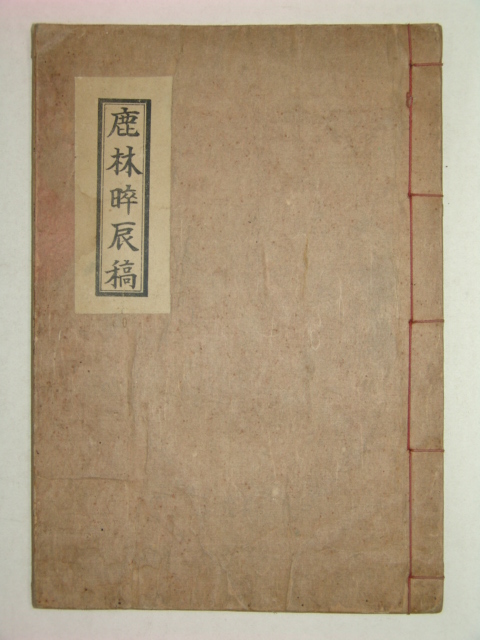 鹿林晬辰稿